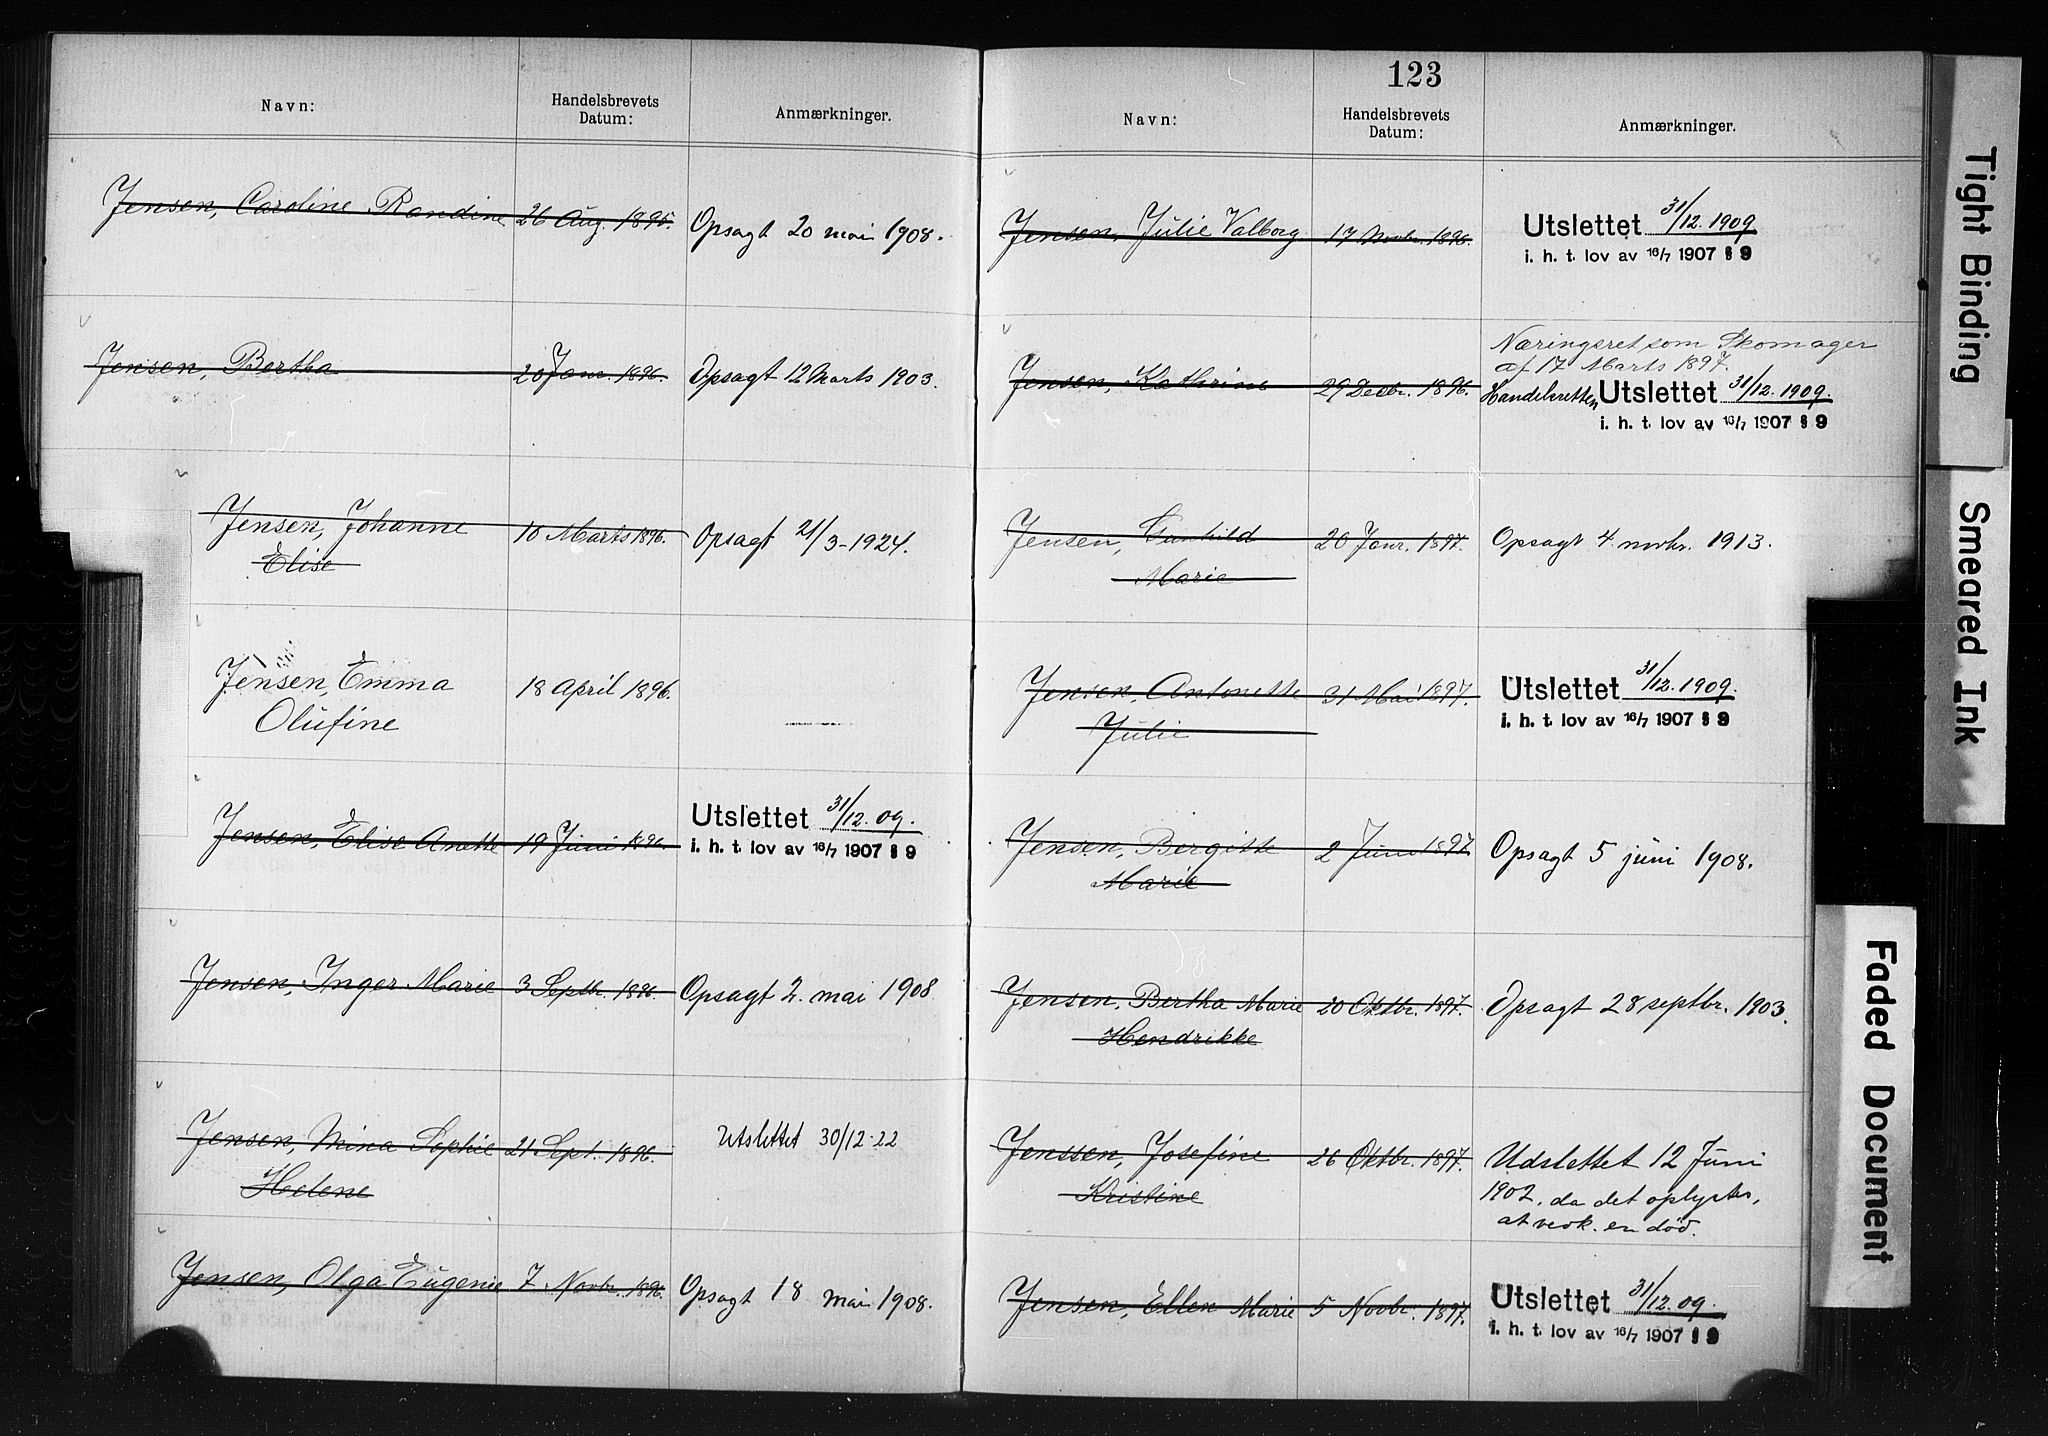 Navn:
Handelsbrevets
Datum:
Anmærkninger.
Jensen, Caroline Randine 26 Aug. 1895. Opsagt 20 mai 1908.
Jensen, Bertha 20 Janr. 1896. Opsagt 12 Marts 1903.
Jensen, Johanne 10 Marts 1896. Opsagt 21/3-1924.
Elise
Jensen, Emma 18 April 1896.
Olufine
Utslettet 31/12. 09.
Jensen, Elise Anette 19 Juni 1896. i. h. t. lov av 16/7 1907 § 9
Jensen, Inger Marie 3 Septbr. 1896. Opsagt 2. mai 1908
Jensen, Mina Sophie 21 Sept. 1896. Utslettet 30/12-22
Helene
Jensen, Olga Eugenie 7. Novbr. 1896. Opsagt 18 mai 1908.
123
Navn:
Handelsbrevets
Datum:
Anmærkninger.
Jensen, Julie Valborg 17 Novbr. 1896. Utslettet 31/12. 1909
i. h. t. lov av 16/7 1907 § 9
Næringsret som Skomager
af 17 Marts 1897.
Jensen, Kathrine 29 Decbr. 1896. Handelsretten Utslettet 31/12. 1909.
i. h. t. lov av 16/7 1907 § 9
Jensen, Gunhild 20 Janr. 1897. Opsagt 4. novbr. 1913.
Marie
Jensen, Antonette 31 Mai 1897. Utslettet 31/12. 1909.
Julie i. h. t. lov av 16/7 1907 § 9
Jensen, Bergitte 2 Juni 1897 Opsagt 5 juni 1908.
Marie
Jensen, Bertha Marie 20 Oktbr. 1897. Opsagt 28 septbr. 1903.
Hendrikke
Jenssen, Josefine 26 Oktbr. 1897. Udslettet 12 Juni
Kristine 1902, da det oplystes,
at vedk. er død.
Jensen, Ellen Marie 5 Novbr. 1897. Utslettet 31/12. 09.
i. h. t. lov av 16/7 1907 § 9
Tight Binding
Smeared Ink
Faded Document